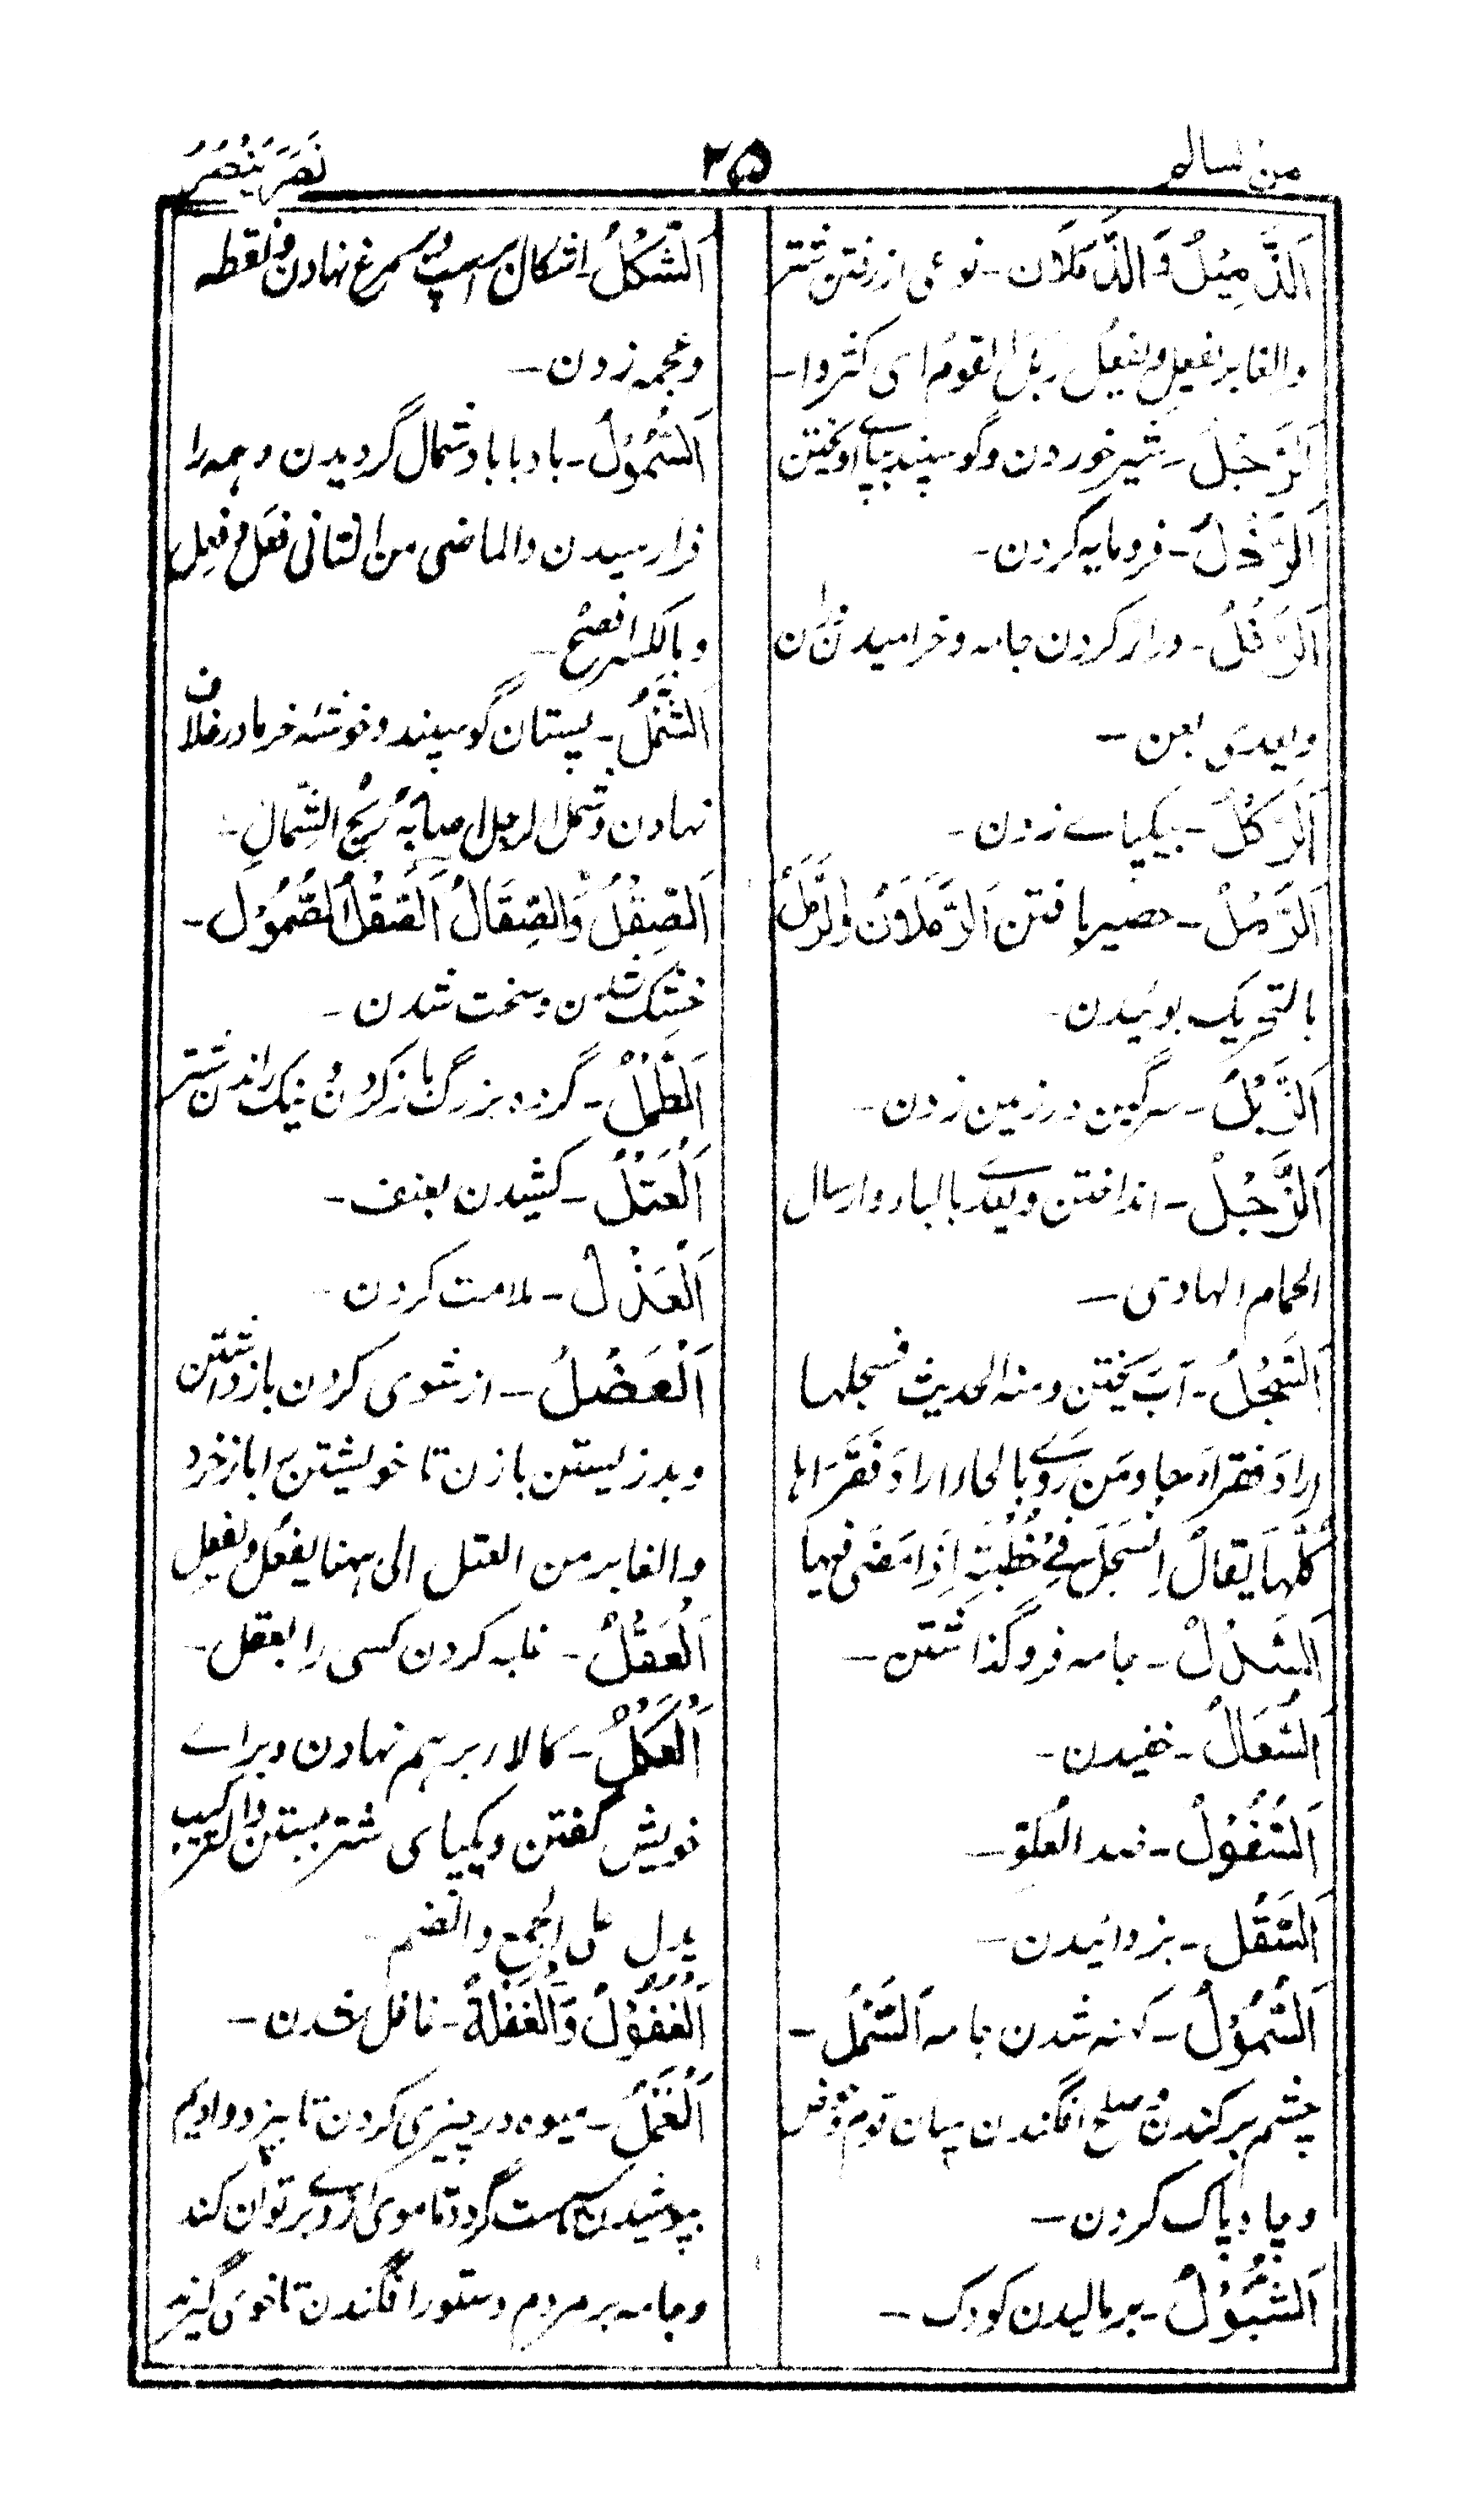 من السالم
۲۵
نَصَرَ يَنْصُرُ
اَلذَّمِيْلُ وَالذَّمَلَان - نوعی از رفتن شتر
والغابر یفعِل ویفعُل رَبَلَ القوم ای کثروا -
اَلرَّجْلُ - شیر خوردن وگوسپند بپاے آویختن
اَلرَّذْلُ - فرومایه کردن -
اَلرَّفْلُ - دراز کردن جامه وخرامیدن دران
ویعدی بعن -
اَلرَّكْلُ - بیکپاے زدن -
اَلرَّمْلُ - حصیر بافتن اَلرَّمَلَانُ والرَّمَلُ
بالتحریک پوئیدن -
اَلزَّبْلُ - سرگین در زمین زدن -
اَلزَّجْلُ - انداختن ویعدے بالباء وارسال
الحمام الهادی -
اَلسَّجْلُ - آب ریختن ومنه الحدیث فسجلها
اراد فقراه بها ومن روے بالحاء اراد فَقَرَاها
كلّها یقال اِنْسَجَلَ فِیْ خُطْبَتِهٖ اِذَا مَضٰی فیها
اَلسَّدْلُ - جامه فروگذاشتن -
اَلسُّعَالُ - خفیدن -
اَلسُّفُوْلُ - ضد العلو -
اَلسَّقْل - بزدائیدن -
اَلسُّمُوْلُ - کهنه شدن جامه اَلسَّمْلُ -
چشم برکندن وصلح افگندن میان قوم وحوض
وچاه پاک کردن -
اَلشُّبُوْلُ - ببر مالیدن کودک -
اَلشَّكْلُ - اشکال بر اسپ ومرغ نهادن ونقطه
وعجمه زدن -
اَلشُّمُوْلُ - باد با باد شمال گردیدن وهمه را
فرا رسیدن والماضی من الثانی فعَل وفعِل
وبالکسر افصح -
اَلشَّمْلُ - پستان گوسپند وخوشهٔ خرما در غلاف
نهادن وشمل الرجل اصابه ریح الشِّمال -
اَلصَّقْلُ وَالصِّقَالُ اَلصَّقْلُ اَلصُّمُوْل -
خشک شدن وسخت شدن -
اَلطَّمْلُ - گرده بزرگ باز کردن ونیک راندن شتر
اَلْعَتْلُ - کشیدن بعنف -
اَلْعَذْلُ - ملامت کردن -
اَلْعَضْلُ - از شوی کردن باز داشتن
وبد زیستن با زن تا خویشتن را باز خرد
والغابر من العتل الی ههنا یفعُل ویفعِل
اَلْعَقْلُ - غلبه کردن کسی را بعقل -
اَلْعَكْلُ - کالا بر هم نهادن وبراے
خویش گفتن ویکپای شتر بستن والترکیب
یدل علی الجمع والضم -
اَلْغُفُوْلُ وَالْغَفْلَةُ - غافل شدن -
اَلْغَمْلُ - میوه در چیزی کردن تا بپزد وادیم
پوشیدن تا سست گردد تا موی از وے بر توان کند
وجامه بر مردم وستور افگندن تا خوی گیرند